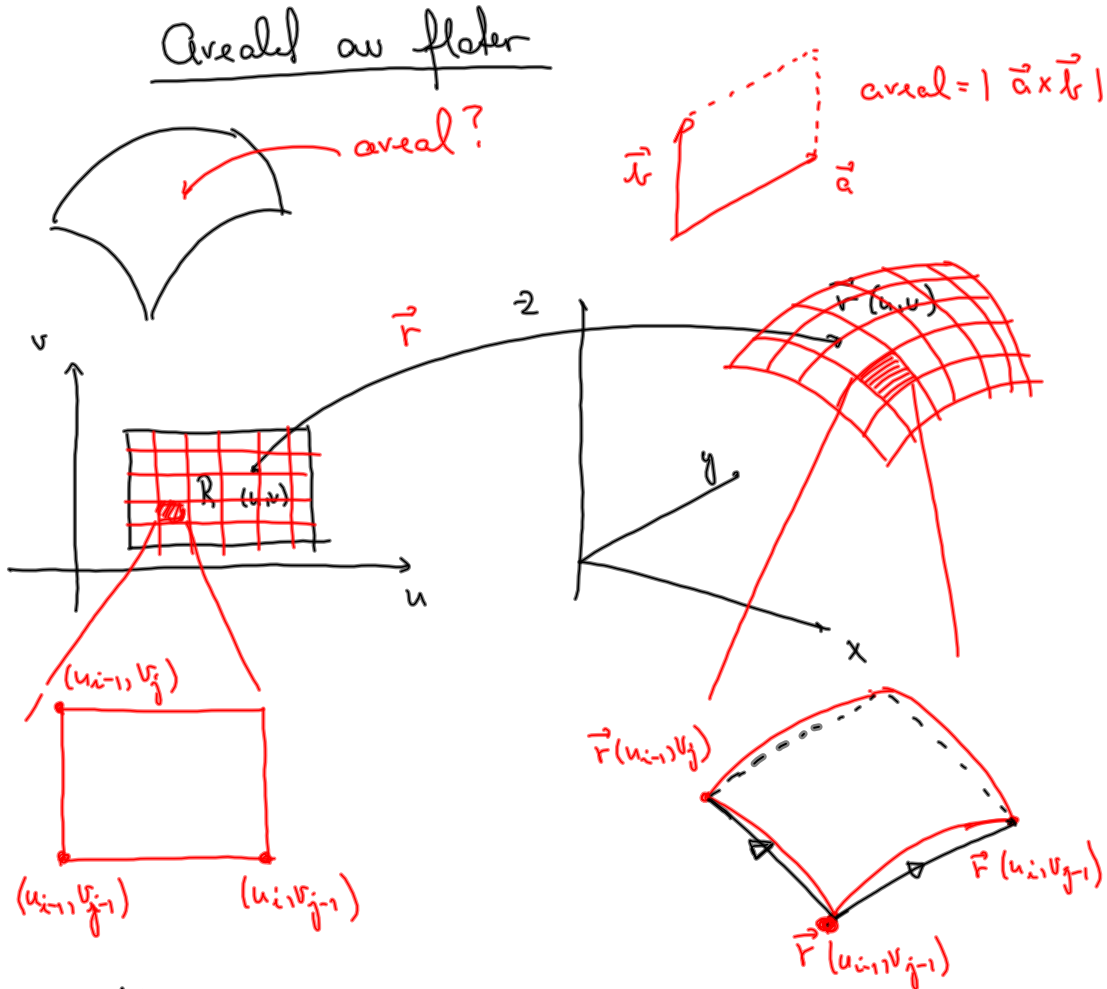 Arealet av flater
areal?
areal = | \vec{a} × \vec{b} |
\vec{b}
\vec{a}
v
\vec{r}
z
\vec{r}(u,v)
R
(u,v)
y
u
x
(u_{i-1}, v_j)
\vec{r}(u_{i-1}, v_j)
(u_{i-1}, v_{j-1})
(u_i, v_{j-1})
\vec{r}(u_i, v_{j-1})
\vec{r}(u_{i-1}, v_{j-1})